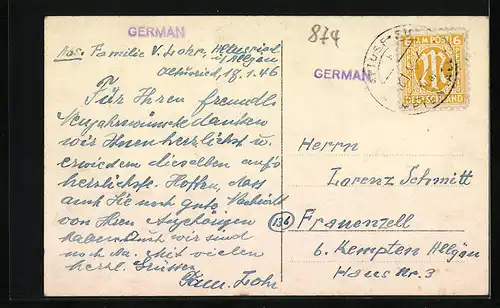 GERMAN
874
Abs. Familie V. Lohr, Altusried
i/Allgäu
Altusried, 18.1.46
GERMAN
AM POST
6
DEUTSCHLAND
Für Ihren freundl.
Neujahrswünsche danken
wir Ihnen herzlichst u.
erwiedern dieselben aufs
herzlichste. Hoffen, dass
auch Sie noch gute Nachricht
von Ihren Angehörigen
haben. Auch wir sind
noch da. Mit vielen
herzl. Grüssen
Fam. Lohr
Herrn
Lorenz Schmitt
13b
Frauenzell
b. Kempten Allgäu
Haus Nr. 3